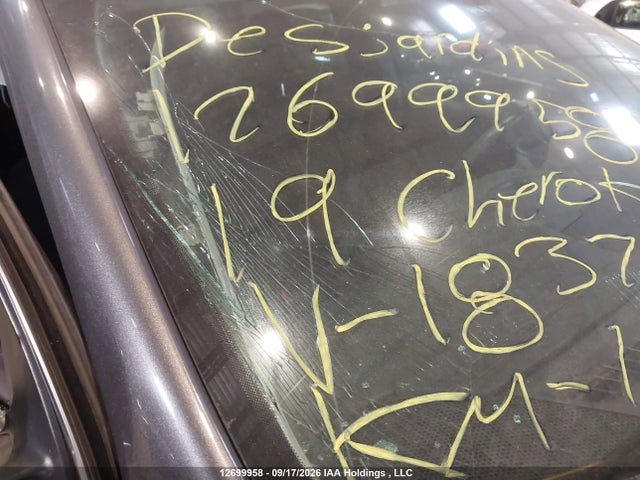 Desjardins
12699958
19 Cherok
V-1837
KM-1
12699958 - 09/17/2026 IAA Holdings , LLC